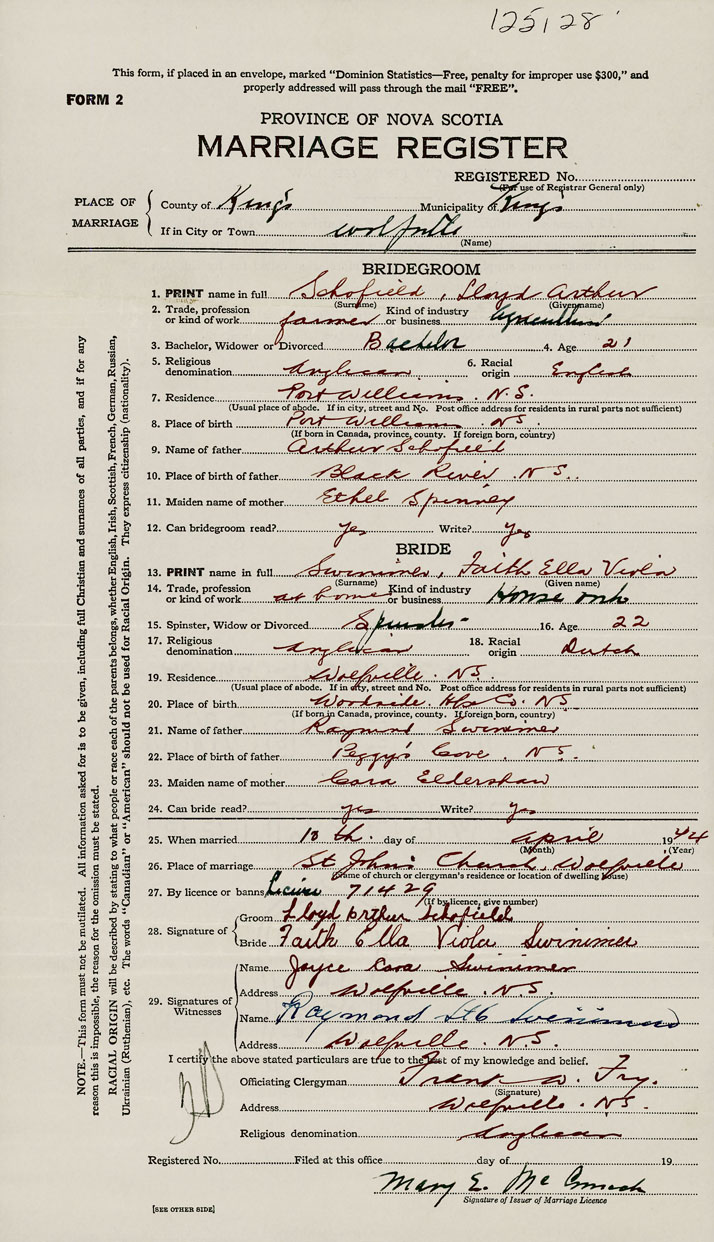 125128
This form, if placed in an envelope, marked “Dominion Statistics—Free, penalty for improper use $300,” and
properly addressed will pass through the mail “FREE”.
FORM 2
PROVINCE OF NOVA SCOTIA
MARRIAGE REGISTER
REGISTERED No.
(For use of Registrar General only)
PLACE OF MARRIAGE
County of King's Municipality of Kings
If in City or Town Wolfville
(Name)
BRIDEGROOM
1. PRINT name in full Schofield, Lloyd Arthur
(Surname) (Given name)
2. Trade, profession or kind of work farmer Kind of industry or business Agriculture
3. Bachelor, Widower or Divorced Bachelor 4. Age 21
5. Religious denomination Anglican 6. Racial origin English
7. Residence Port Williams. N.S.
(Usual place of abode. If in city, street and No. Post office address for residents in rural parts not sufficient)
8. Place of birth Port Williams. NS.
(If born in Canada, province, county. If foreign born, country)
9. Name of father Arthur Schofield
10. Place of birth of father Black River. N S.
11. Maiden name of mother Ethel Spinney
12. Can bridegroom read? Yes Write? Yes
BRIDE
13. PRINT name in full Swinimer, Faith Ella Viola
(Surname) (Given name)
14. Trade, profession or kind of work at home Kind of industry or business House work
15. Spinster, Widow or Divorced Spinster 16. Age 22
17. Religious denomination Anglican 18. Racial origin Dutch
19. Residence Wolfville. NS.
(Usual place of abode. If in city, street and No. Post office address for residents in rural parts not sufficient)
20. Place of birth Woodside. Hfx Co. NS.
(If born in Canada, province, county. If foreign born, country)
21. Name of father Raymond Swinimer
22. Place of birth of father Peggy's Cove. NS.
23. Maiden name of mother Cora Eldershaw
24. Can bride read? yes Write? Yes
25. When married 10 th. day of April 1944
(Month) (Year)
26. Place of marriage St John's Church, Wolfville
(Name of church or clergyman's residence or location of dwelling house)
27. By licence or banns License 71429
(If by licence, give number)
28. Signature of Groom Lloyd Arthur Schofield
Bride Faith Ella Viola Swinimer
29. Signatures of Witnesses
Name Joyce Cora Swinimer
Address Wolfville. N.S.
Name Raymond Swinimer
Address Wolfville. N.S.
I certify the above stated particulars are true to the best of my knowledge and belief.
Officiating Clergyman Frank W. Fry.
(Signature)
Address Wolfville. NS.
Religious denomination Anglican
Registered No. Filed at this office day of 19
Mary E.
Signature of Issuer of Marriage Licence
[SEE OTHER SIDE]
NOTE.—This form must not be mutilated. All information asked for is to be given, including full Christian and surnames of all parties, and if for any
reason this is impossible, the reason for the omission must be stated.
RACIAL ORIGIN will be described by stating to what people or race each of the parents belongs, whether English, Irish, Scottish, French, German, Russian,
Ukrainian (Ruthenian), etc. The words “Canadian” or “American” should not be used for Racial Origin. They express citizenship (nationality).